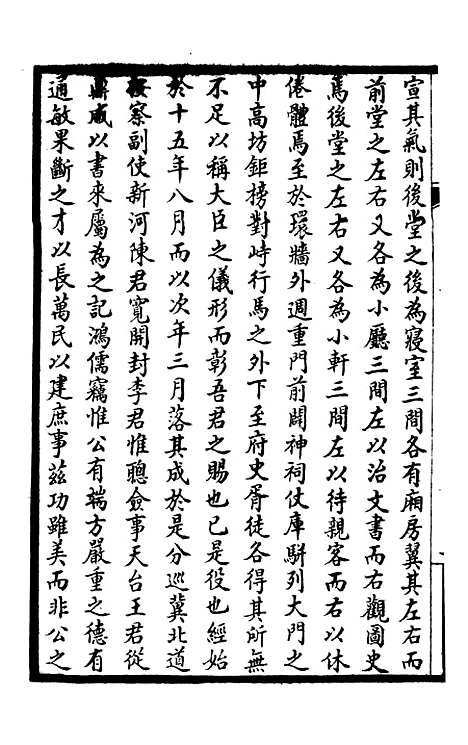 宣其氣則後堂之後為寢室三間各有廂房翼其左右而
前堂之左右又各為小廳三間左以治文書而右觀圖史
焉後堂之左右又各為小軒三間左以待親客而右以休
倦體焉至於環牆外週重門前闢神祠仗庫駢列大門之
中高坊鉅榜對峙行馬之外下至府史胥徒各得其所無
不足以稱大臣之儀形而彰吾君之賜也已是役也經始
於十五年八月而以次年三月落其成於是分巡冀北道
按察副使新河陳君寬開封李君惟聰僉事天台王君從
鼎咸以書來屬為之記鴻儒竊惟公有端方嚴重之德有
通敏果斷之才以長萬民以建庶事茲功雖美而非公之